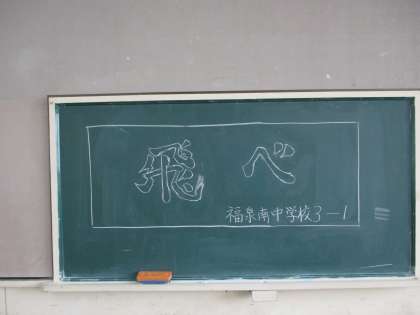 飛べ
福泉南中学校3-1